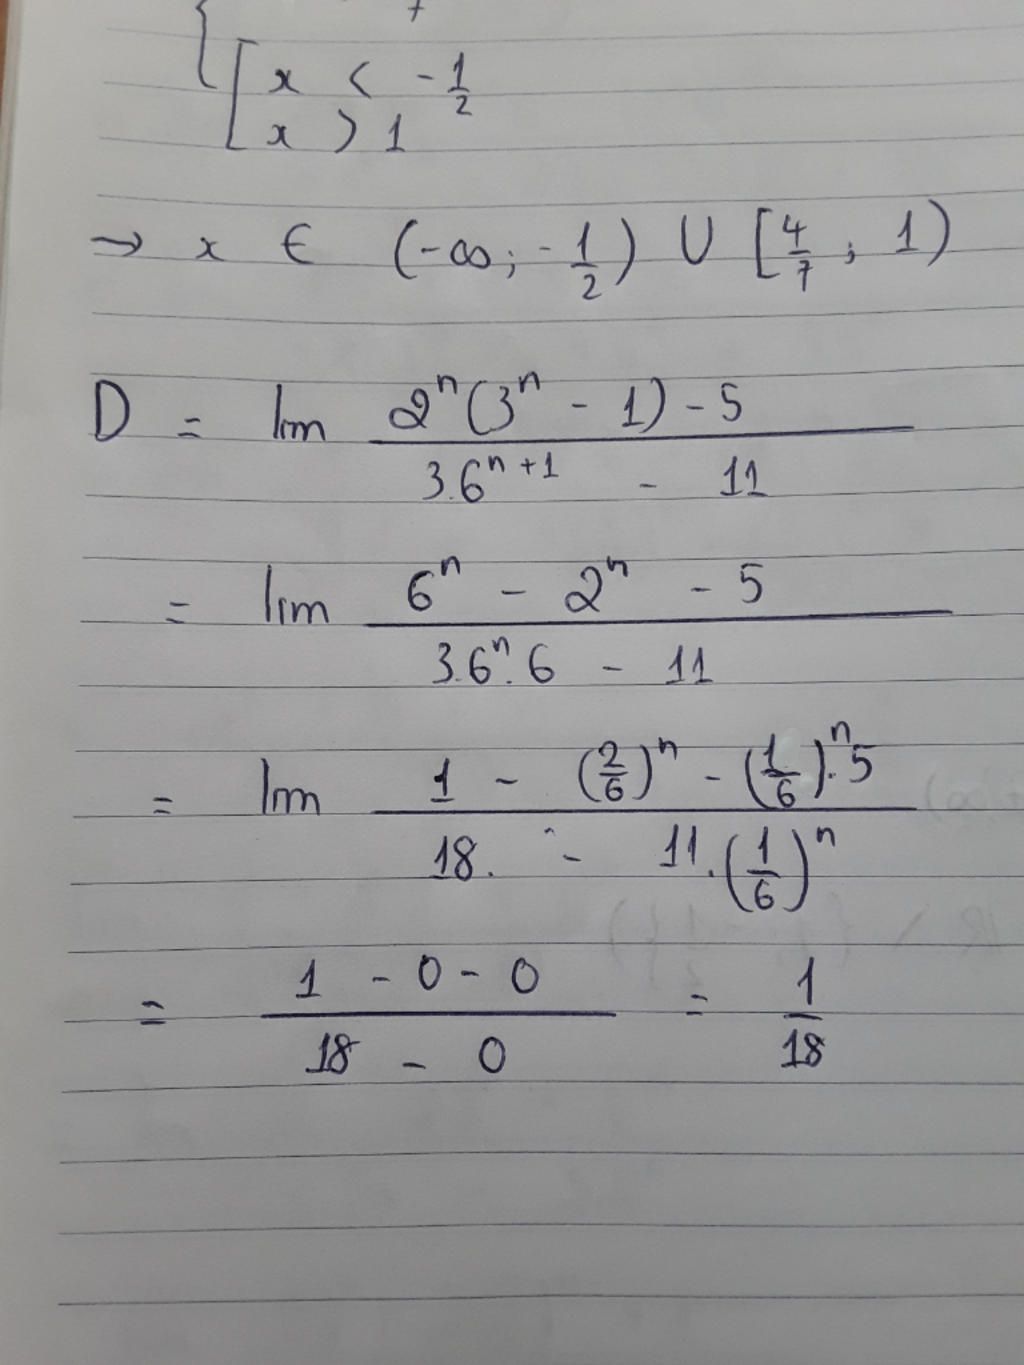 x < - 1/2
x > 1
→ x ∈ (-∞; - 1/2) ∪ [4/7; 1)
D = lim (2^n(3^n - 1) - 5) / (3.6^(n+1) - 11)
= lim (6^n - 2^n - 5) / (3.6^n.6 - 11)
= lim (1 - (2/6)^n - (1/6)^n.5) / (18. - 11.(1/6)^n)
= (1 - 0 - 0) / (18 - 0) = 1/18